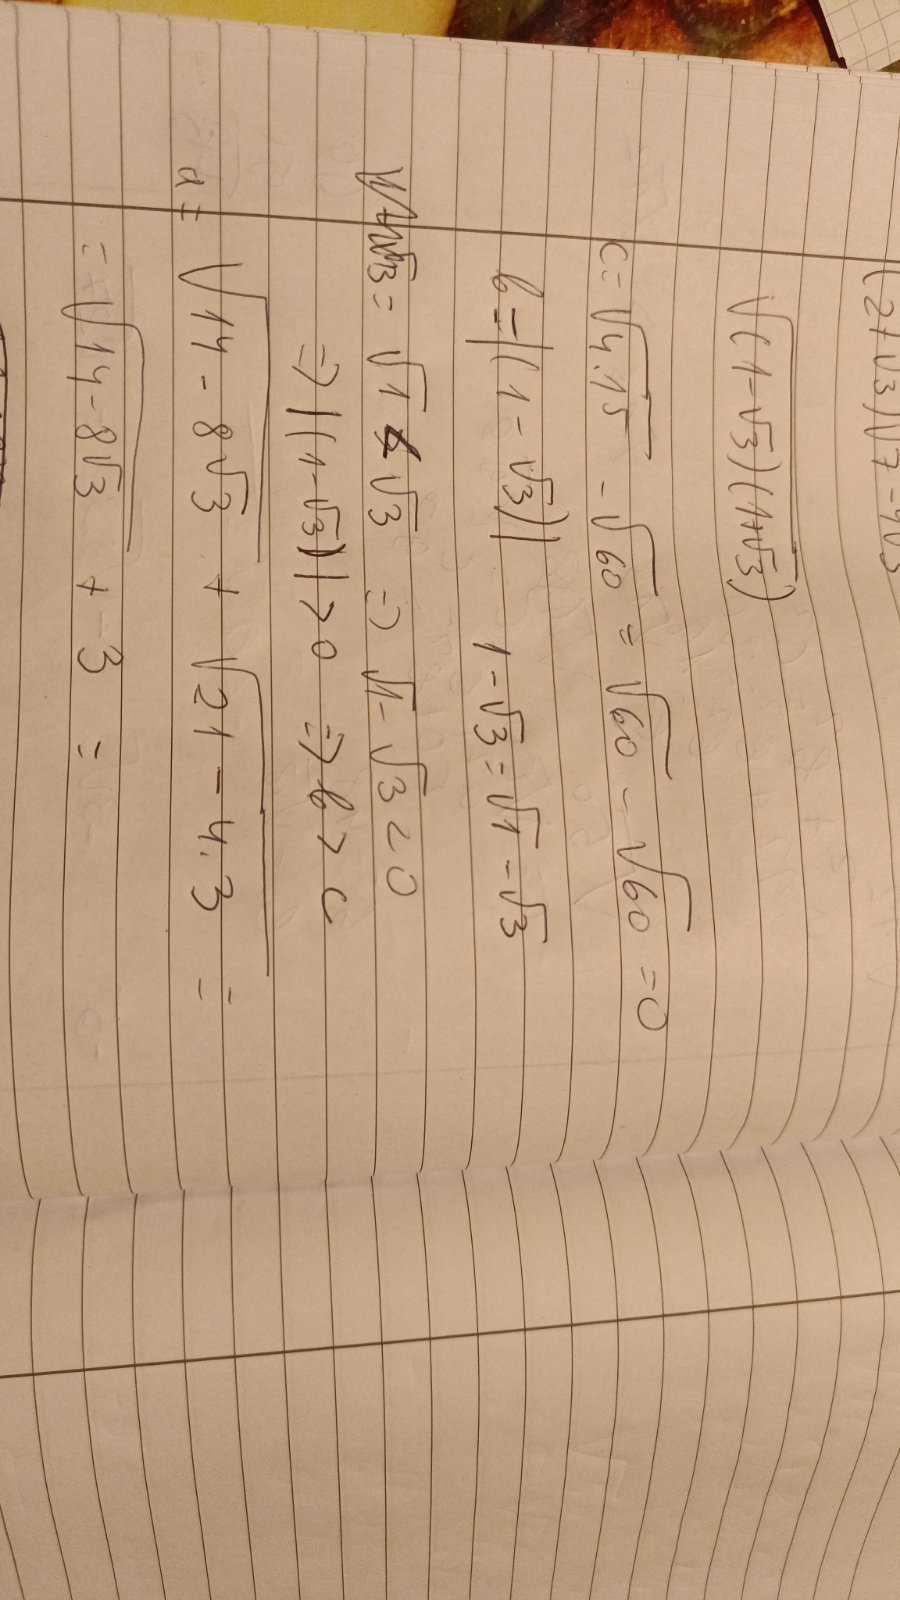 (2+√3)√7-4√3
√(1-√3)(1+√3)
c = √4.15 - √60 = √60 - √60 = 0
b = |(1 - √3)| 1-√3 = √1 - √3
= √1 < √3 => √1 - √3 < 0
=> |(1-√3)| > 0 => b > c
a = √14 - 8√3 + √21 - 4.3 =
= √14 - 8√3 + 3 =